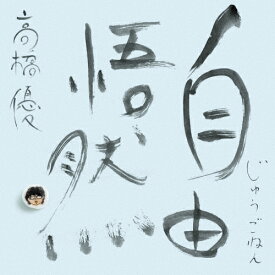 自由
じゆうごねん
悟然
高橋優